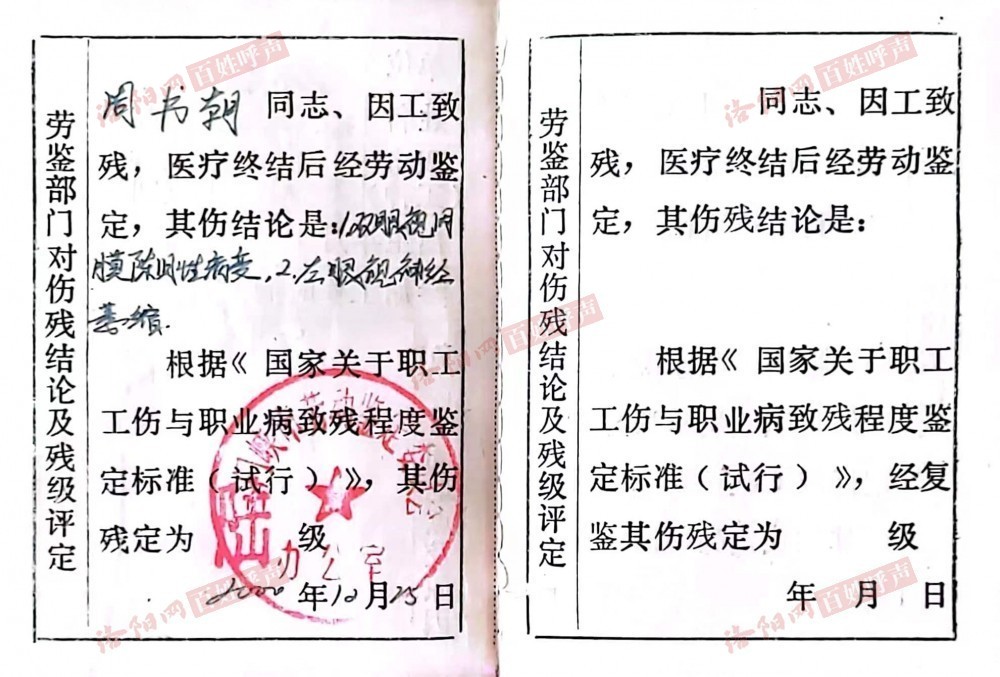 劳鉴部门对伤残结论及残级评定
周书朝 同志、因工致
残，医疗终结后经劳动鉴
定，其伤结论是：1、双眼视网
膜陈旧性病变，2、左眼视神经
萎缩.
根据《 国家关于职工
工伤与职业病致残程度鉴
定标准（试行）》，其伤
残定为 陆 级
办公室
2000 年 10 月 25 日
劳鉴部门对伤残结论及残级评定
同志、因工致
残，医疗终结后经劳动鉴
定，其伤残结论是：
根据《 国家关于职工
工伤与职业病致残程度鉴
定标准（试行）》，经复
鉴其伤残定为 级
年 月 日
洛阳网 百姓呼声
洛阳网 百姓呼声
洛阳网 百姓呼声
洛阳网 百姓呼声
洛阳网 百姓呼声
洛阳网 百姓呼声